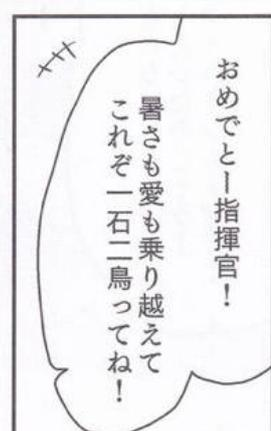 おめでとー指揮官！
暑さも愛も乗り越えて
これぞ一石二鳥ってね！